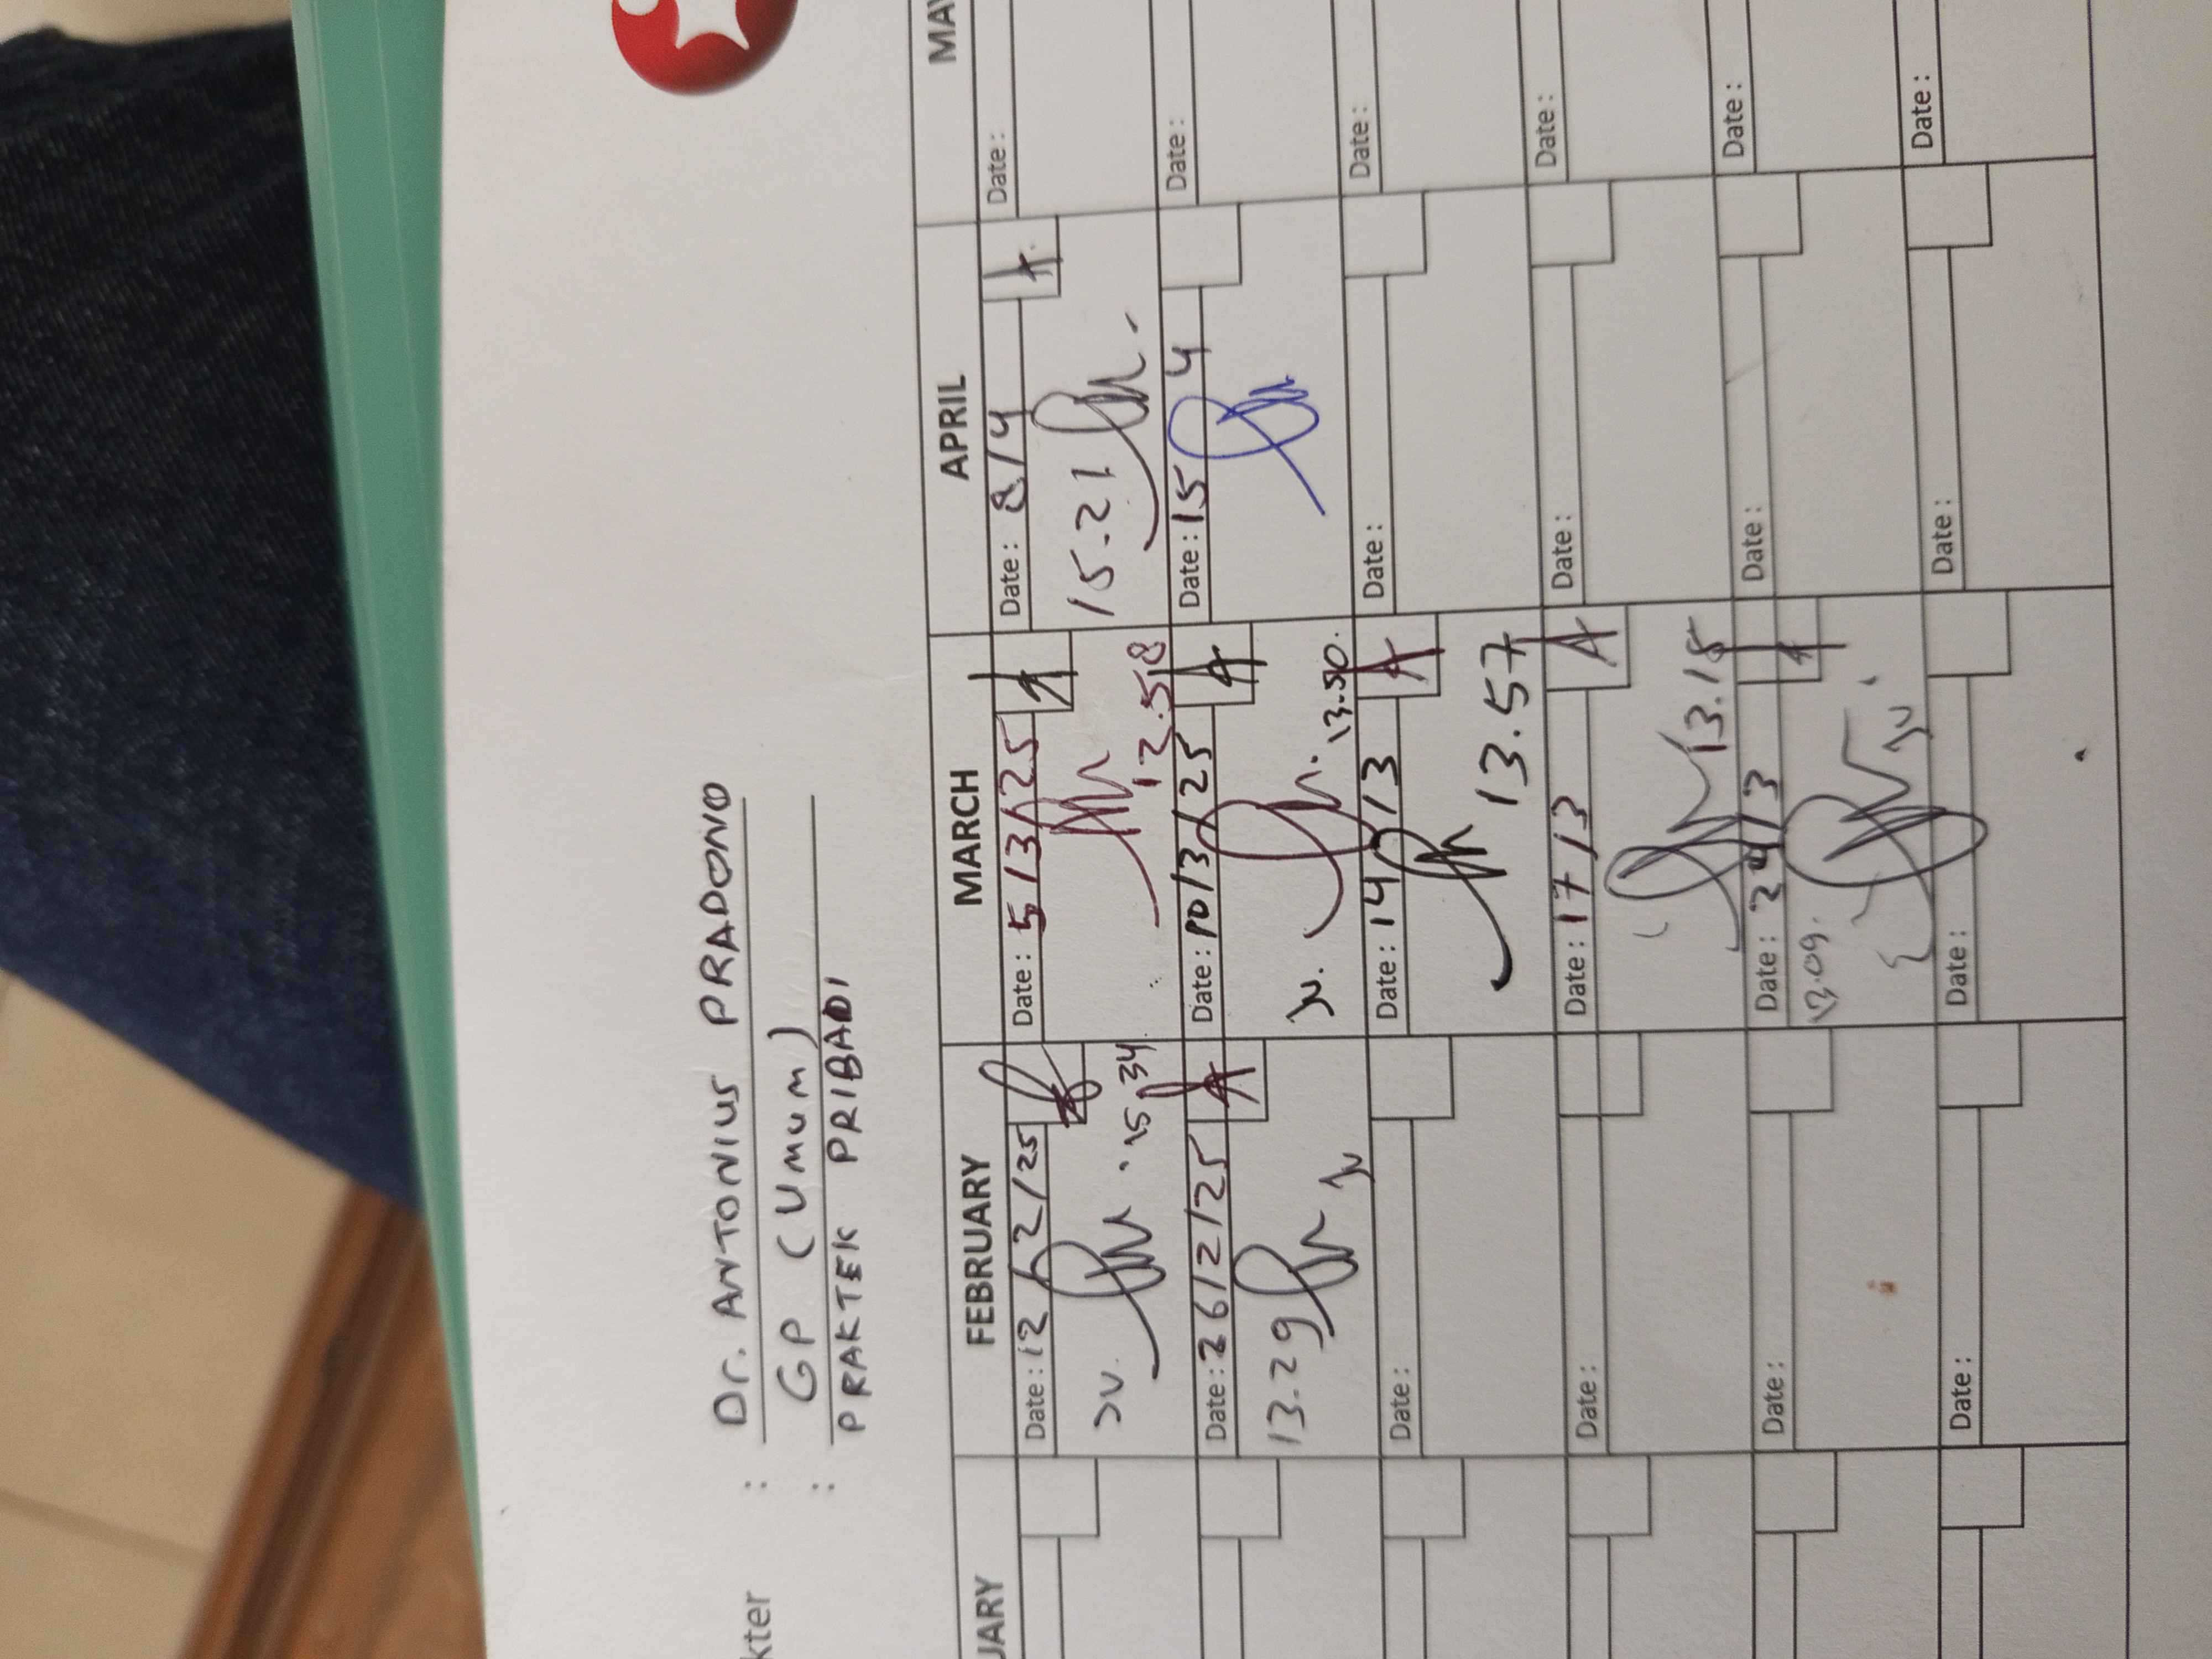 kter : Dr. ANTONIUS PRADONO
: GP (UMUM)
PRAKTEK PRIBADI
UARY FEBRUARY MARCH APRIL MAY
Date: 12/2/25 Date: 5/3/25 Date: 8/4 Date:
15.34 12.58 15-21
Date: 26/2/25 Date: 10/3/25 Date: 15 4 Date:
13-29 13-50.
Date: Date: 14/3 Date: Date:
13.57
Date: Date: 17/3 Date: Date:
13.15
Date: Date: 24/3 Date: Date:
13.09.
Date: Date: Date: Date: